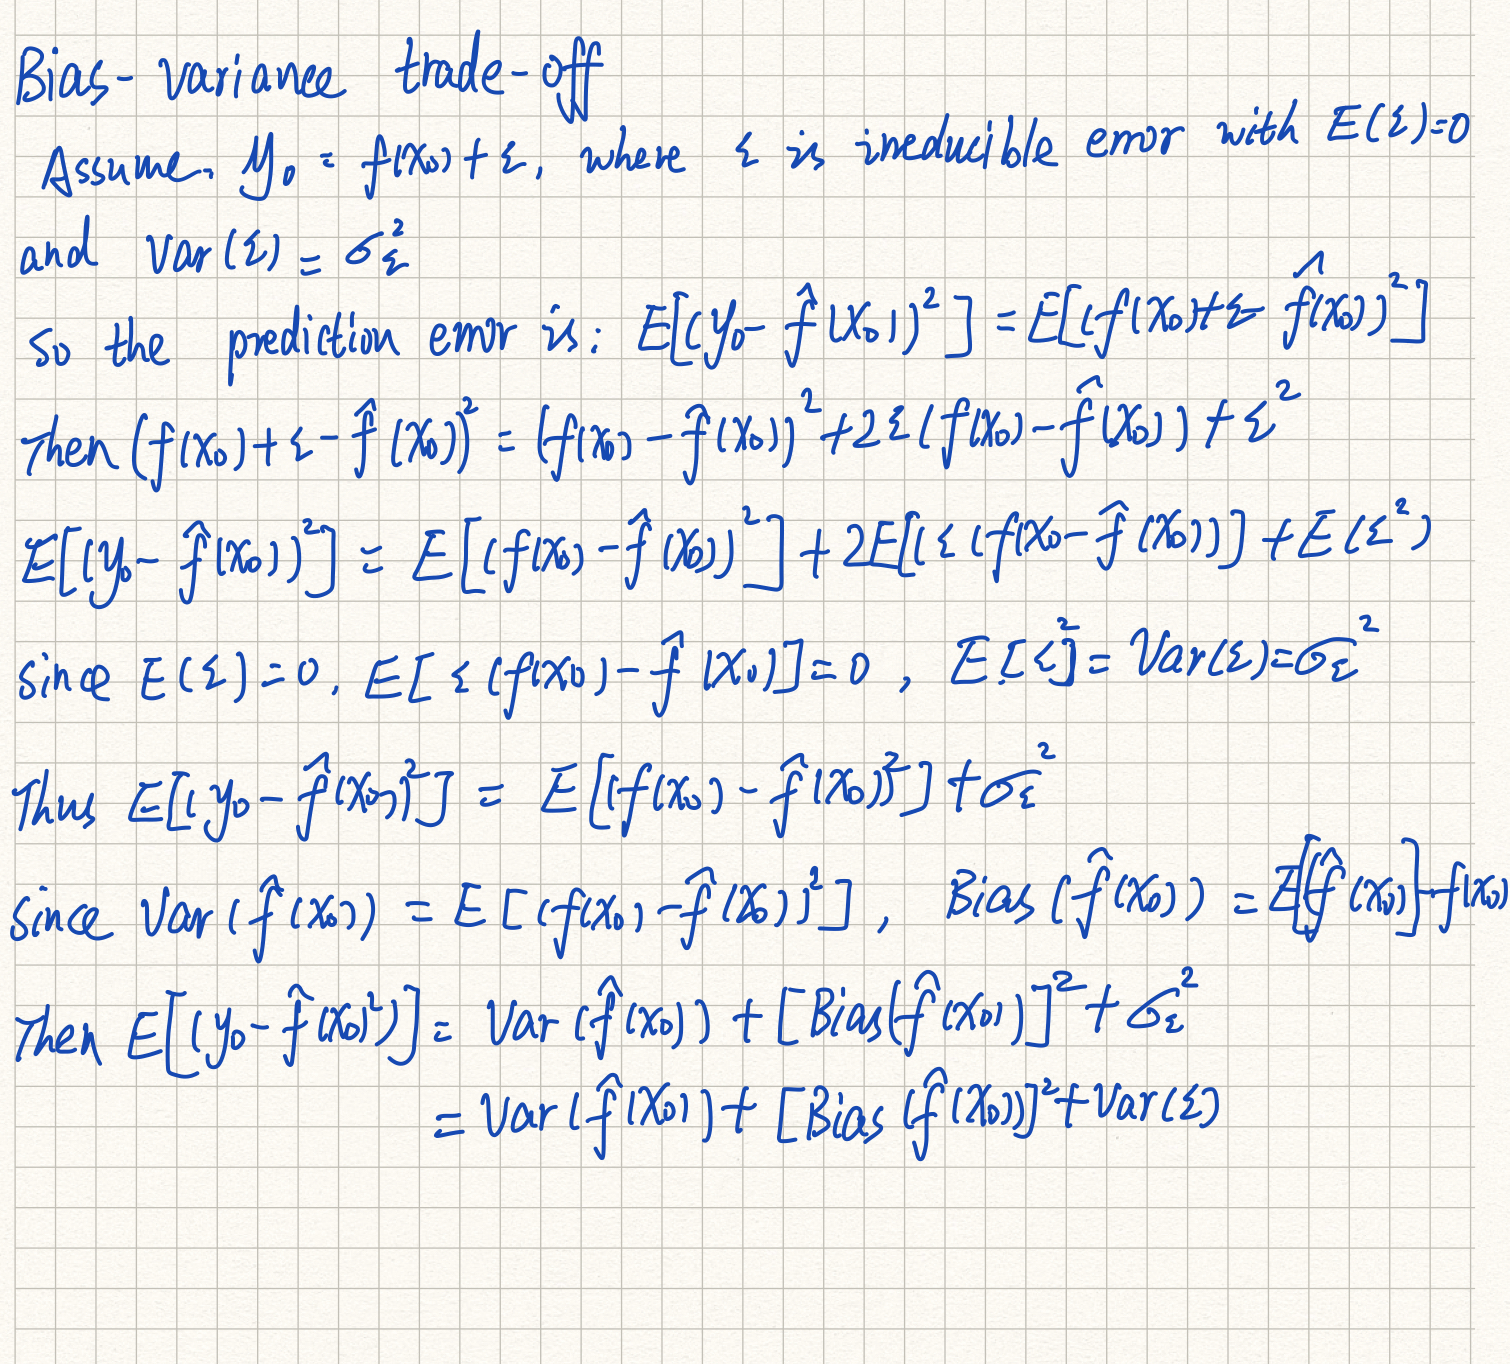 Bias-variance trade-off
Assume. y₀ = f(x₀) + ε, where ε is irreducible error with E(ε)=0
and Var(ε) = σ_ε²
so the prediction error is: E[(y₀ - f̂(x₀))²] = E[(f(x₀)+ε-f̂(x₀))²]
Then (f(x₀)+ε-f̂(x₀))² = (f(x₀)-f̂(x₀))² + 2ε(f(x₀)-f̂(x₀)) + ε²
E[(y₀-f̂(x₀))²] = E[(f(x₀)-f̂(x₀))²] + 2E[(ε(f(x₀-f̂(x₀))] + E(ε²)
since E(ε)=0, E[ε(f(x₀)-f̂(x₀)]=0, E[ε²] = Var(ε)=σ_ε²
Thus E[(y₀-f̂(x₀))²] = E[(f(x₀)-f̂(x₀))²] + σ_ε²
since Var(f̂(x₀)) = E[(f(x₀)-f̂(x₀))²], Bias(f̂(x₀)) = E[f̂(x₀)]-f(x₀)
Then E[(y₀-f̂(x₀)²)] = Var(f̂(x₀)) + [Bias(f̂(x₀))]² + σ_ε²
= Var(f̂(x₀)) + [Bias(f̂(x₀))]² + Var(ε)